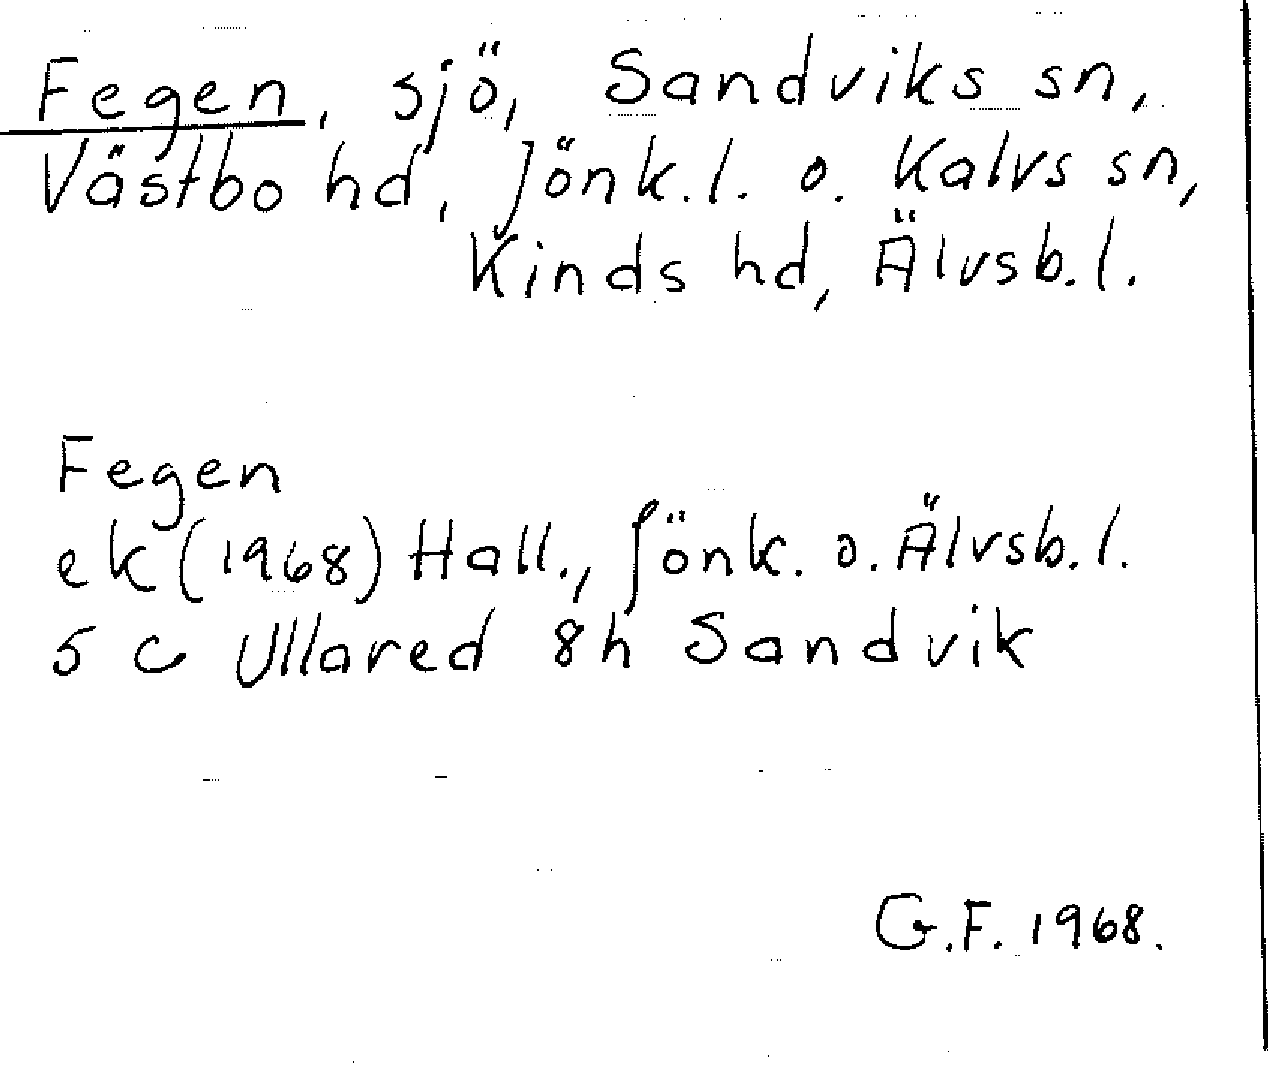 Fegen, sjö, Sandviks sn,
Västbo hd, Jönk.l. o. Kalvs sn,
Kinds hd, Älvsb.l.
Fegen
ek (1968) Hall., Jönk. o. Älvsb.l.
5 C Ullared 8h Sandvik
G.F. 1968.